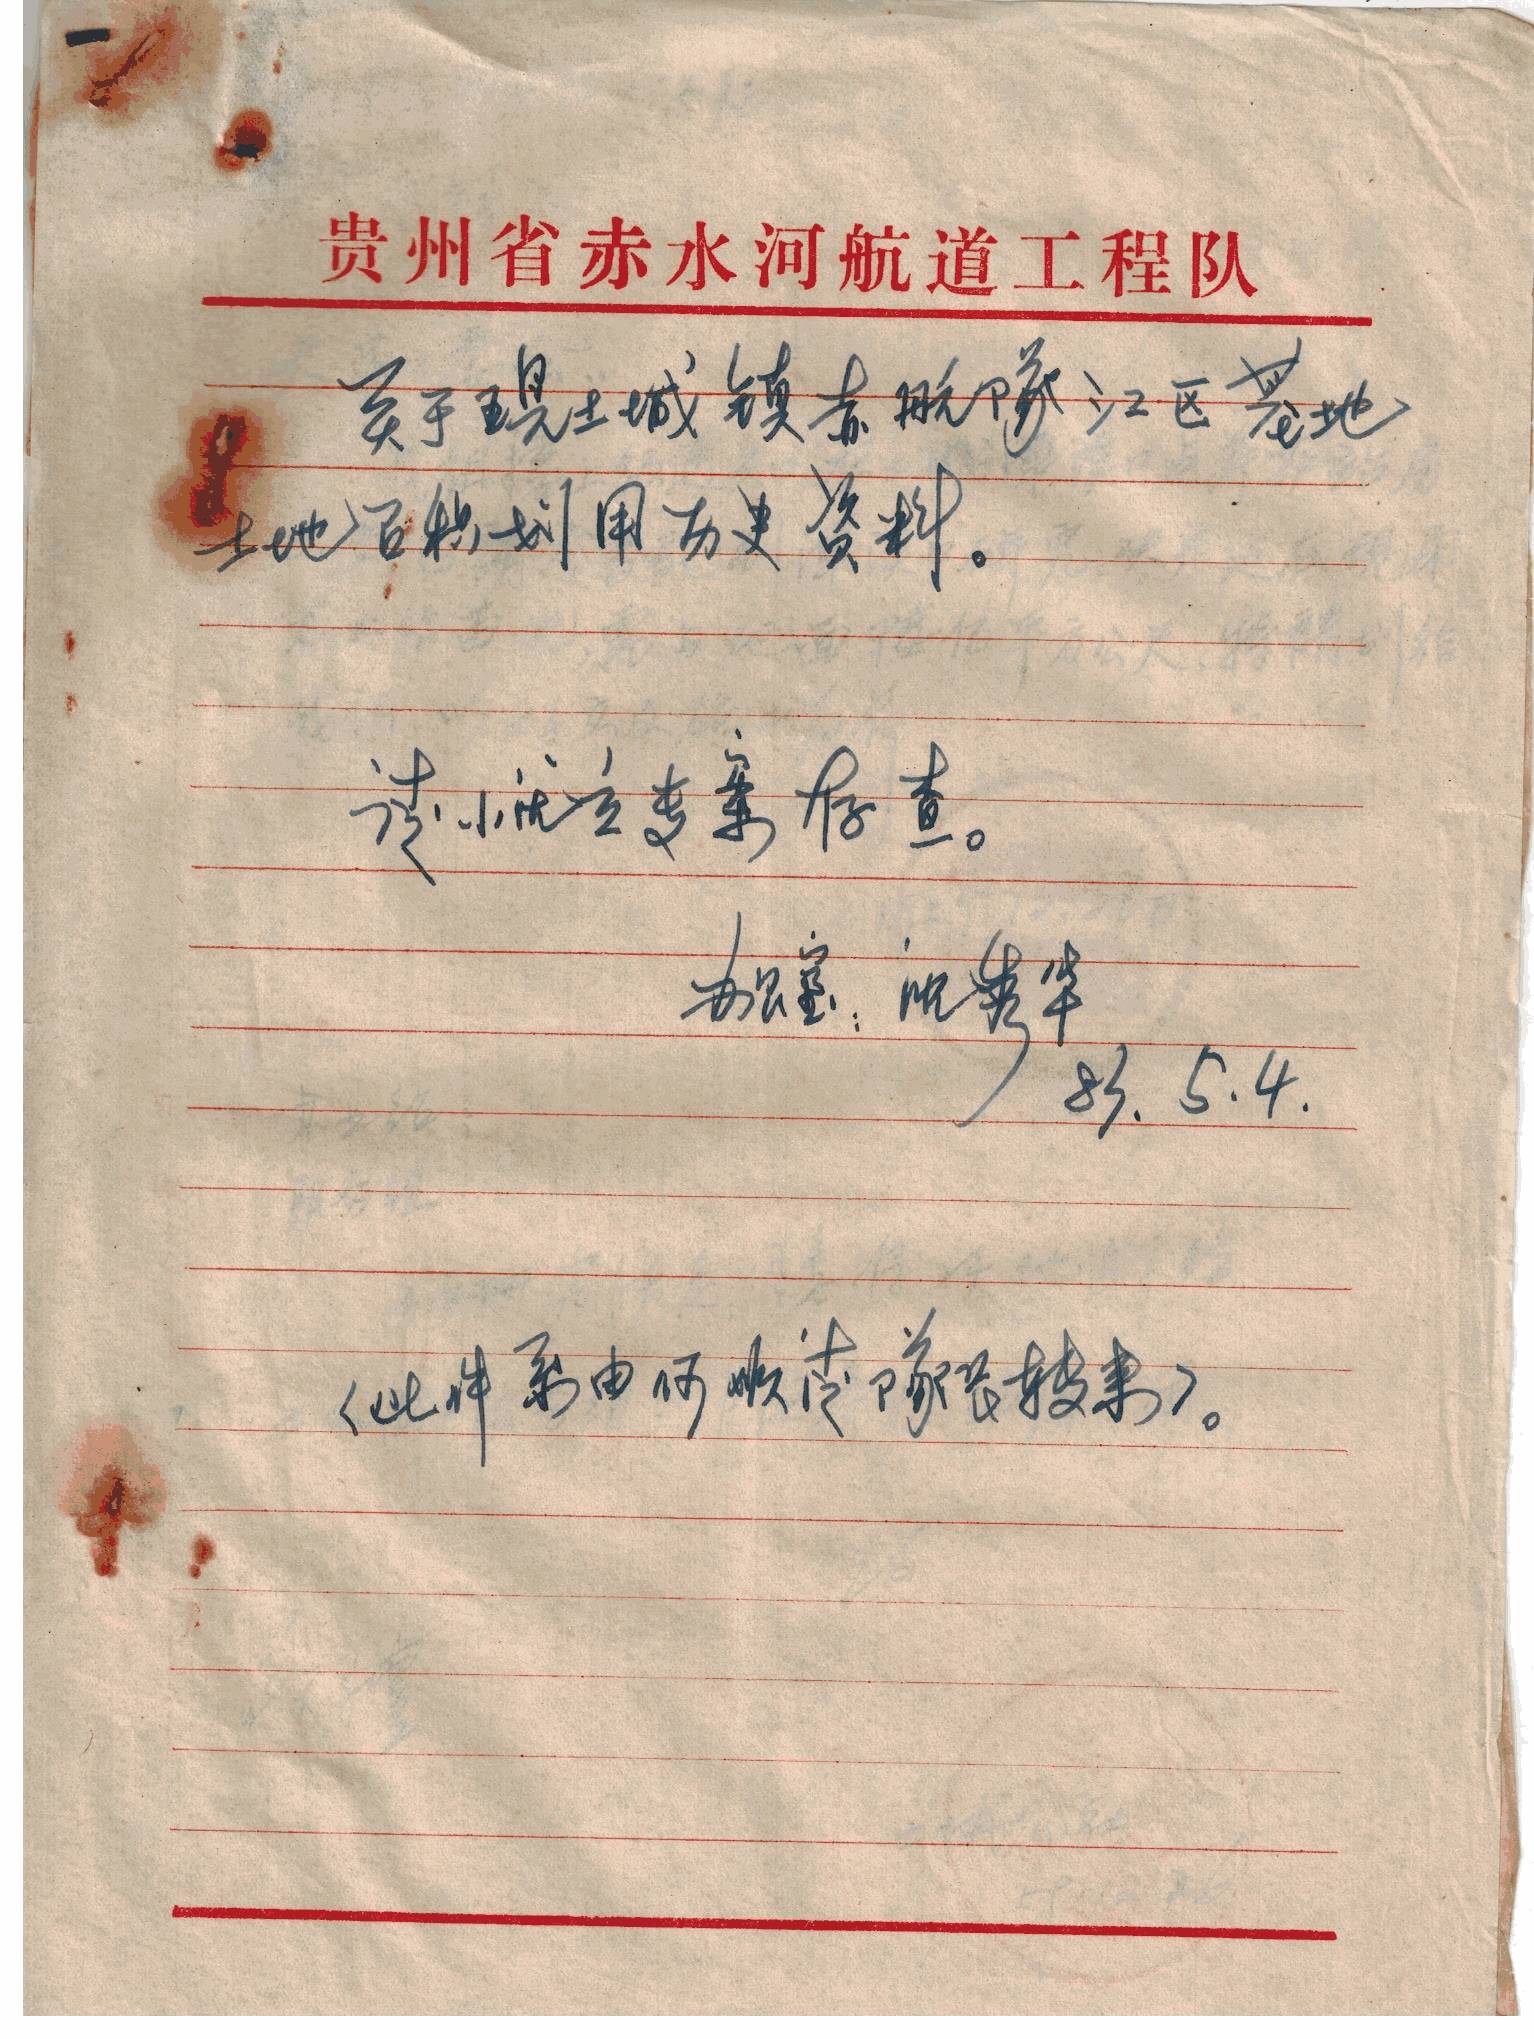 贵州省赤水河航道工程队
关于现土城镇赤航隊江区基地
土地面积划用历史资料。
请小沈立专案存查。
办公室：沈秀华
83.5.4.
（此件系由何顺清隊长转来）。